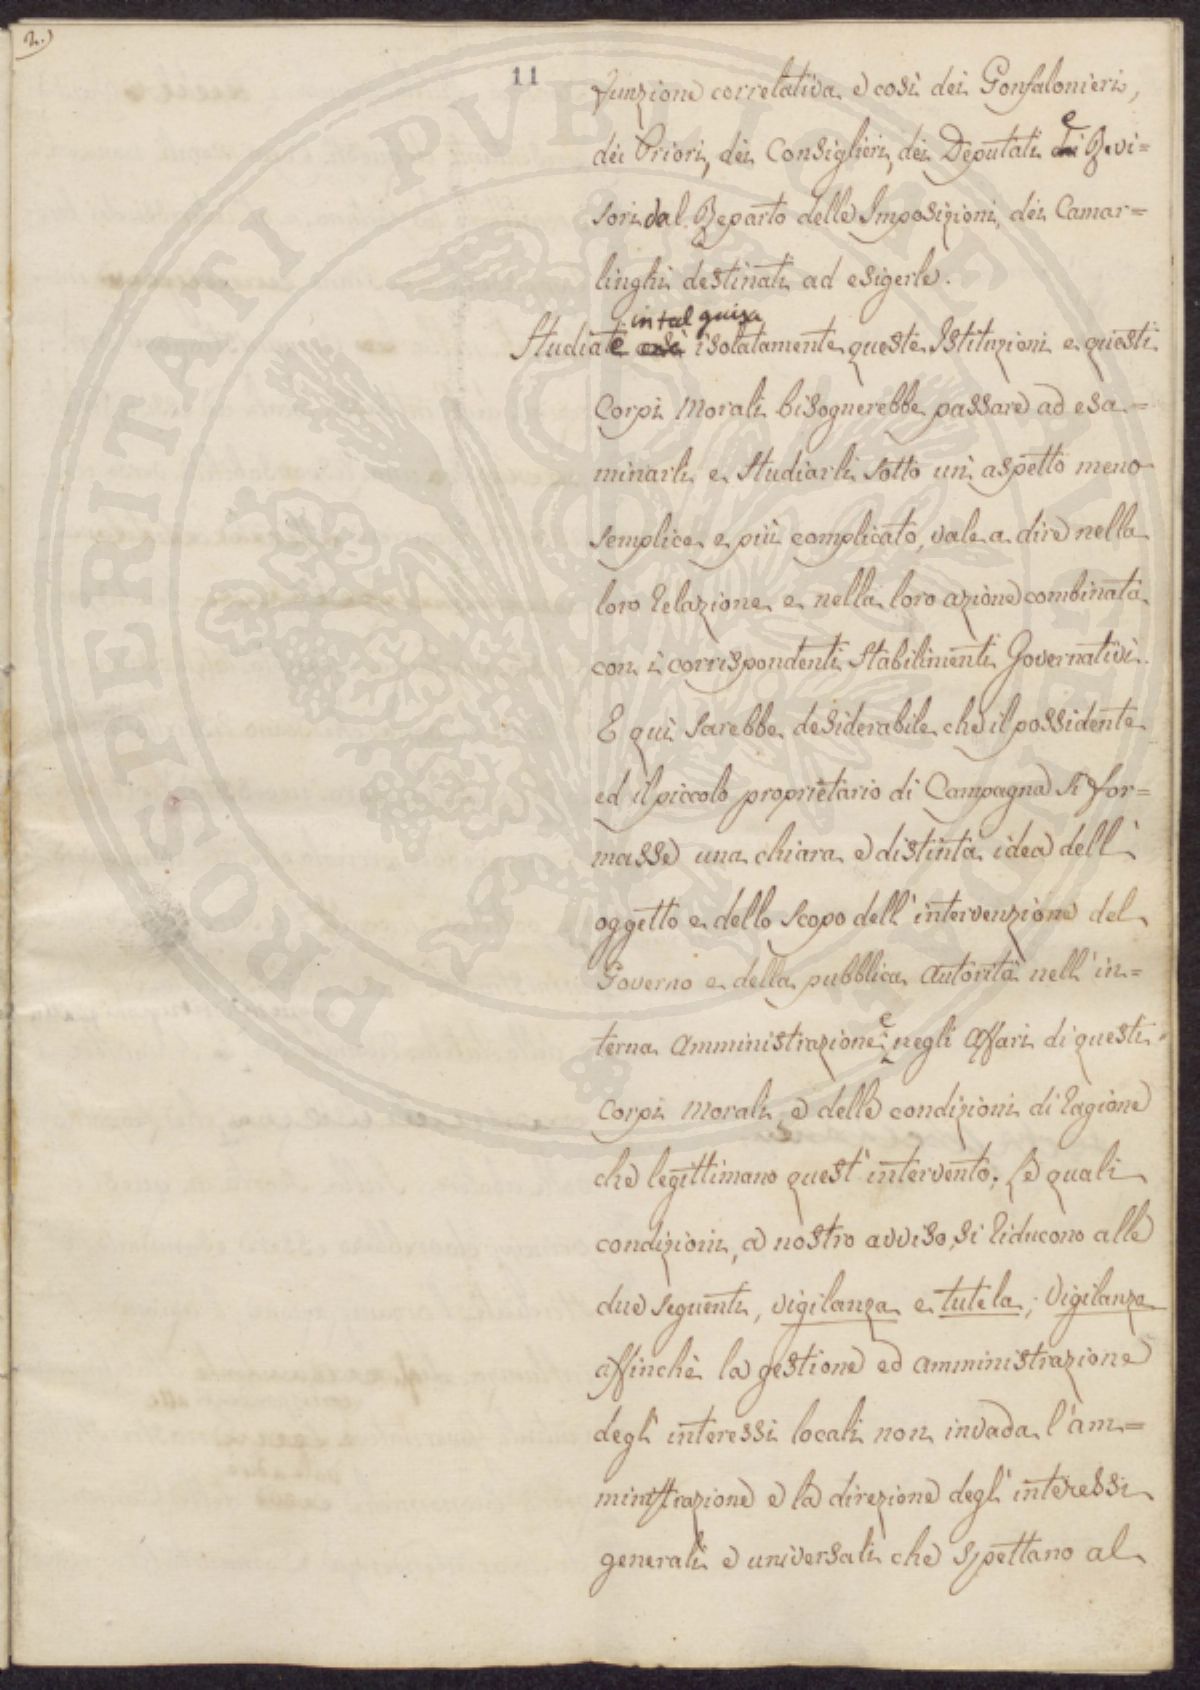 2.)
11
funzione correlativa e così dei Gonfalonieri,
dei Priori, dei Consiglieri, dei Deputati e Revi=
sori dal Reparto delle Imposizioni, dei Camar=
linghi destinati ad esigerle.
in tal guisa
Studiate così isolatamente queste Istituzioni e questi
Corpi Morali bisognerebbe passare ad esa=
minarli e studiarli sotto un aspetto meno
semplice e più complicato, vale a dire nella
loro relazione e nella loro azione combinata
con i corrispondenti Stabilimenti Governativi.
E quì sarebbe desiderabile che il possidente
ed il piccolo proprietario di Campagna si for=
masse una chiara e distinta idea dell'
oggetto e dello scopo dell'intervenzione del
Governo e della pubblica autorità nell'in=
terna Amministrazione e negli Affari di questi
Corpi Morali, e delle condizioni di ragione
che legittimano quest'intervento; Le quali
condizioni, a nostro avviso, si riducono alle
due seguenti, vigilanza e tutela; Vigilanza
affinchè la gestione ed amministrazione
degl'interessi locali non invada l'am=
ministrazione e la direzione degl'interessi
generali e universali che spettano al
PROSPERITATI PVBLICAE AVGENDAE